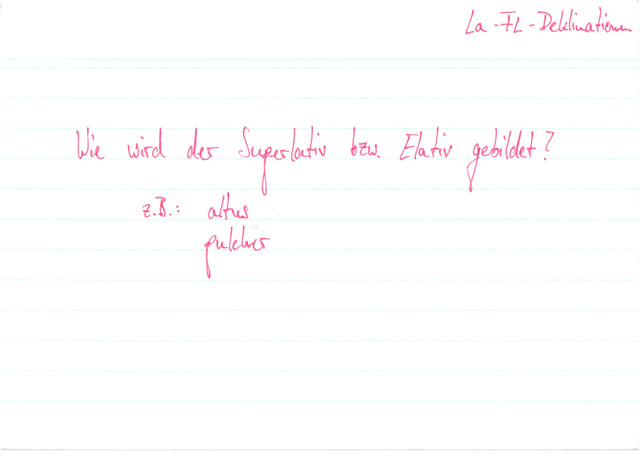 La-FL-Deklinationen
Wie wird der Superlativ bzw. Elativ gebildet?
z.B.: altus
pulcher